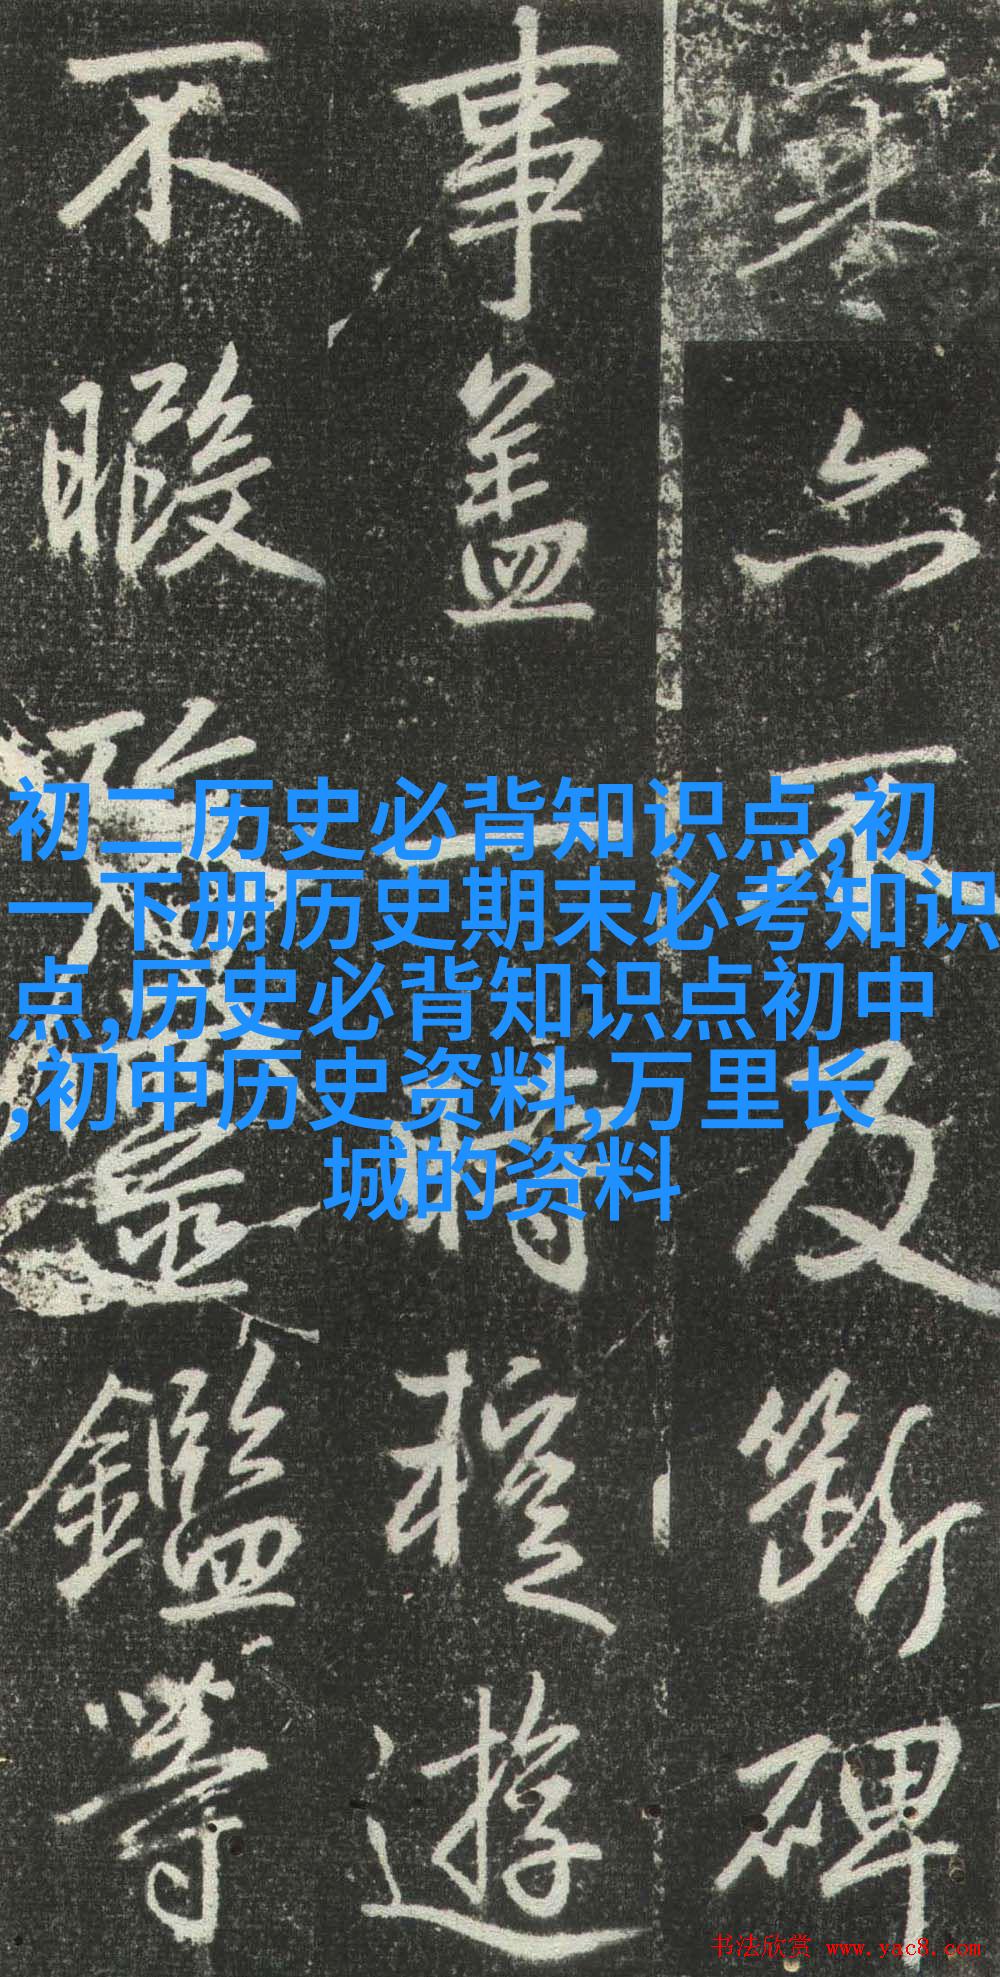 亦不及断碑
事盖一時遊
不暇鑑等
初二历史必背知识点,初
一下册历史期末必考知识
点,历史必背知识点初中
,初中历史资料,万里长
城的资料
书法欣赏 www.yac8.com